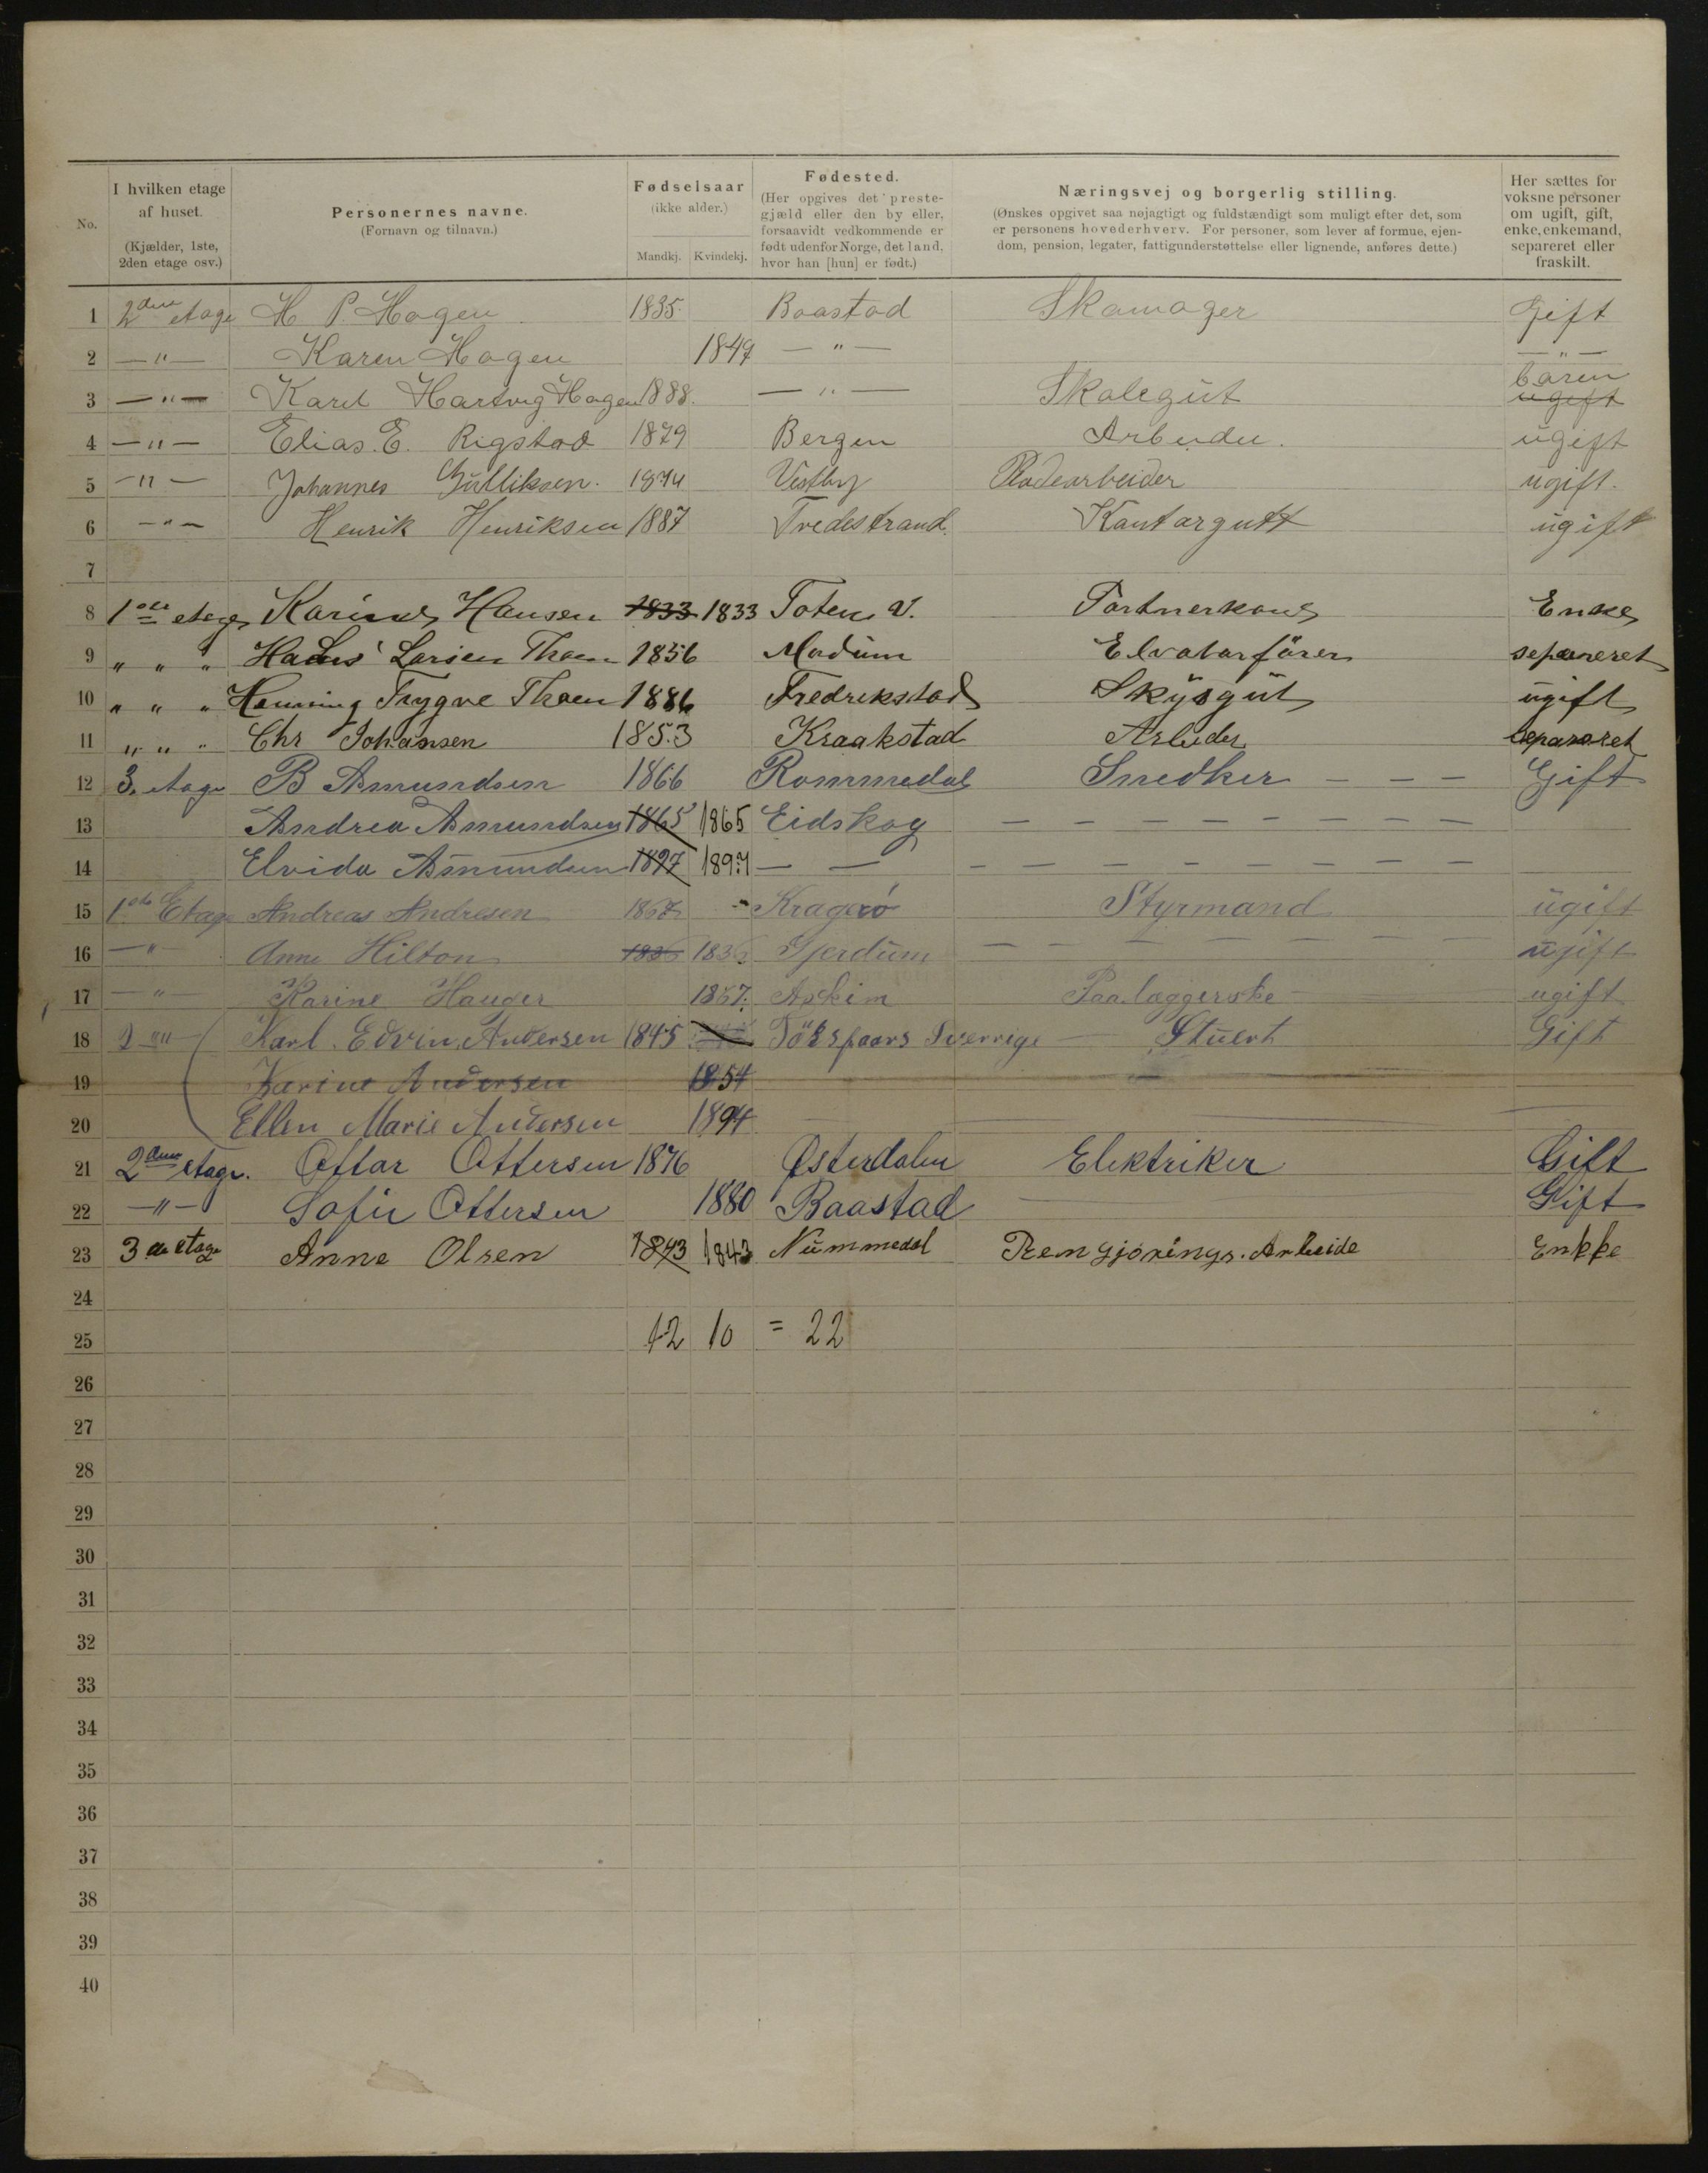 No. I hvilken etage af huset. (Kjælder, 1ste, 2den etage osv.) Personernes navne. (Fornavn og tilnavn.) Fødselsaar (ikke alder.) Mandkj. Kvindekj. Fødested. (Her opgives det prestegjæld eller den by eller, forsaavidt vedkommende er født udenfor Norge, det land, hvor han [hun] er født.) Næringsvej og borgerlig stilling. (Ønskes opgivet saa nøjagtigt og fuldstændigt som muligt efter det, som er personens hovederhverv. For personer, som lever af formue, ejendom, pension, legater, fattigunderstøttelse eller lignende, anføres dette.) Her sættes for voksne personer om ugift, gift, enke, enkemand, separeret eller fraskilt.
1 2den etage H P. Hagen 1835. Baastad Skamager Gift
2 — " — Karen Hagen 1849 — " — — " —
3 — " — Karel Hartvig Hagen 1888. — " — Skolegut baren ugift
4 — " — Elias. E. Rigstad 1879 Bergen Arbeider. ugift
5 — " — Johannes Gulliksen. 1874 Vestby Rodearbeider ugift.
6 — " — Henrik Henriksen 1887 Tvedestrand Kantorgutt ugift
7
8 1ste etage Karine Hansen 1833 1833 Toten V. Portnerkone Enke
9 " " " Hans Larsen Thoen 1856 Modum Elvatorfører separeret
10 " " " Henning Trygve Thoen 1886 Fredrikstad Skysgut ugift
11 " " " Chr Johansen 1853 Kraakstad Arbeider separeret
12 3. etage B Asmundsen 1866 Rommedal Snedker - - - Gift
13 Andrea Asmundsen 1865 1865 Eidskog — — — — — — — —
14 Elvida Asmundsen 1897 1897 — — — — — — — — — —
15 1ste Etage Andreas Andresen 1867 Kragerö Styrmand ugift
16 — " — Anne Hilton 1836 1836 Gjerdum — — — — — — ugift
17 — " — Karine Hauger 1857. Askim Paalæggerske ugift
18 2 — " — Karl. Edvin. Andersen 1845 Töksfaars Sverrige — Stuert Gift
19 Karine Andersen 1854
20 Ellen Marie Andersen 1894
21 2den etage. Ottar Ottersen 1876 Østerdalen Elektriker Gift
22 — " — Sofie Ottersen 1880 Baastad — Gift
23 3de etage Anne Olsen 1843 1843 Nummedal Rengjörings. Arbeide Enkke
24
25 12 10 = 22
26
27
28
29
30
31
32
33
34
35
36
37
38
39
40